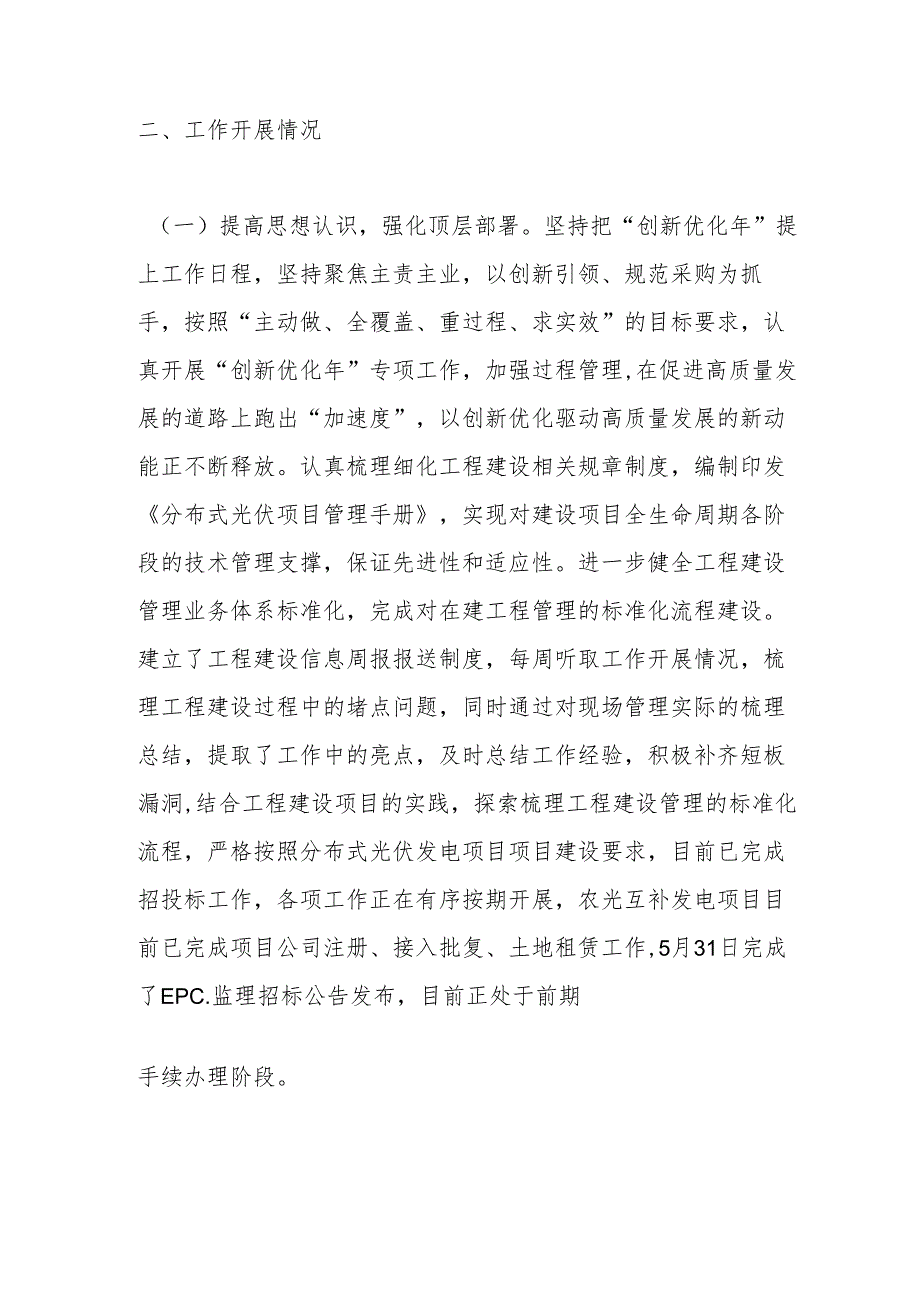 二、工作开展情况
（一）提高思想认识，强化顶层部署。坚持把“创新优化年”提
上工作日程，坚持聚焦主责主业，以创新引领、规范采购为抓
手，按照“主动做、全覆盖、重过程、求实效”的目标要求，认
真开展“创新优化年”专项工作，加强过程管理,在促进高质量发
展的道路上跑出“加速度”，以创新优化驱动高质量发展的新动
能正不断释放。认真梳理细化工程建设相关规章制度，编制印发
《分布式光伏项目管理手册》，实现对建设项目全生命周期各阶
段的技术管理支撑，保证先进性和适应性。进一步健全工程建设
管理业务体系标准化，完成对在建工程管理的标准化流程建设。
建立了工程建设信息周报报送制度，每周听取工作开展情况，梳
理工程建设过程中的堵点问题，同时通过对现场管理实际的梳理
总结，提取了工作中的亮点，及时总结工作经验，积极补齐短板
漏洞,结合工程建设项目的实践，探索梳理工程建设管理的标准化
流程，严格按照分布式光伏发电项目项目建设要求，目前已完成
招投标工作，各项工作正在有序按期开展，农光互补发电项目目
前已完成项目公司注册、接入批复、土地租赁工作,5月31日完成
了EPC.监理招标公告发布，目前正处于前期
手续办理阶段。